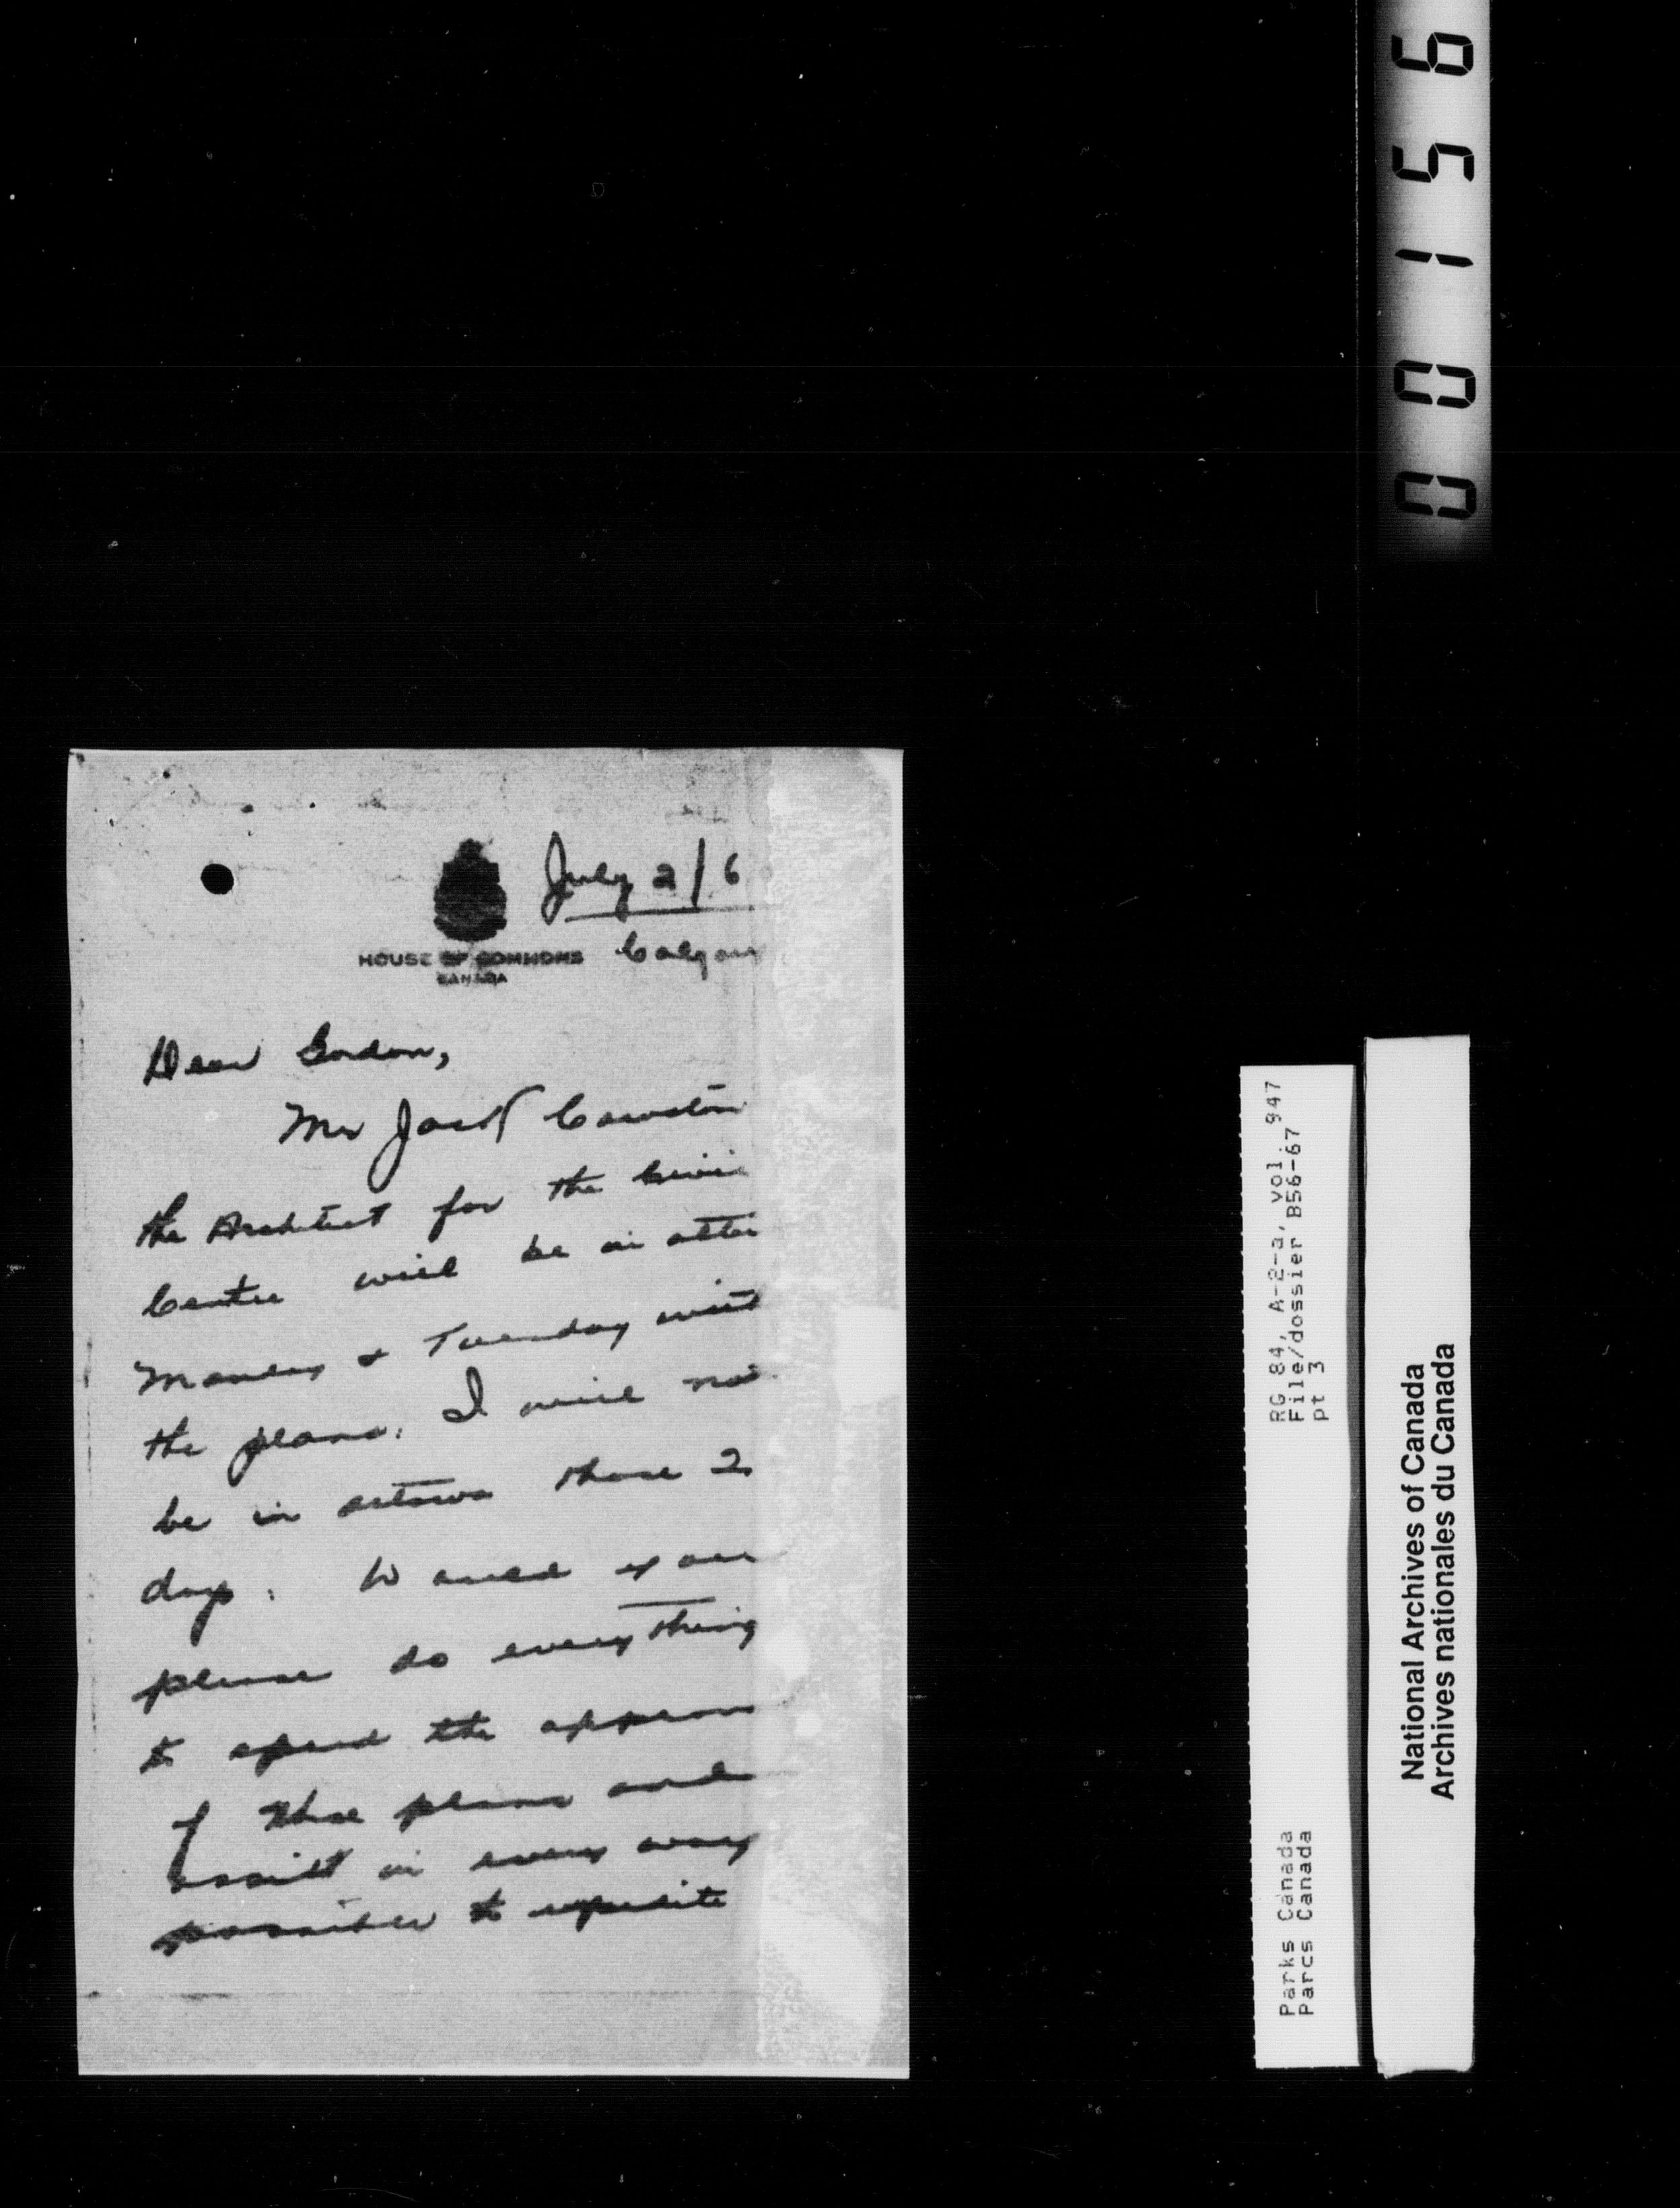 July 2/6
HOUSE OF COMMONS
CANADA
Calgary
Dear Gordon,
Mr Jack Cawston
the Architect for the Civic
Centre will be in Otta
Monday & Tuesday with
the plans. I will no
be in Ottawa those 2
days. Would you
please do everything
to speed the approv
of these plans and
assist in every way
possible to expedite
00156
RG 84, A-2-a, vol. 947
File/dossier B56-67
pt 3
Parks Canada
Parcs Canada
National Archives of Canada
Archives nationales du Canada